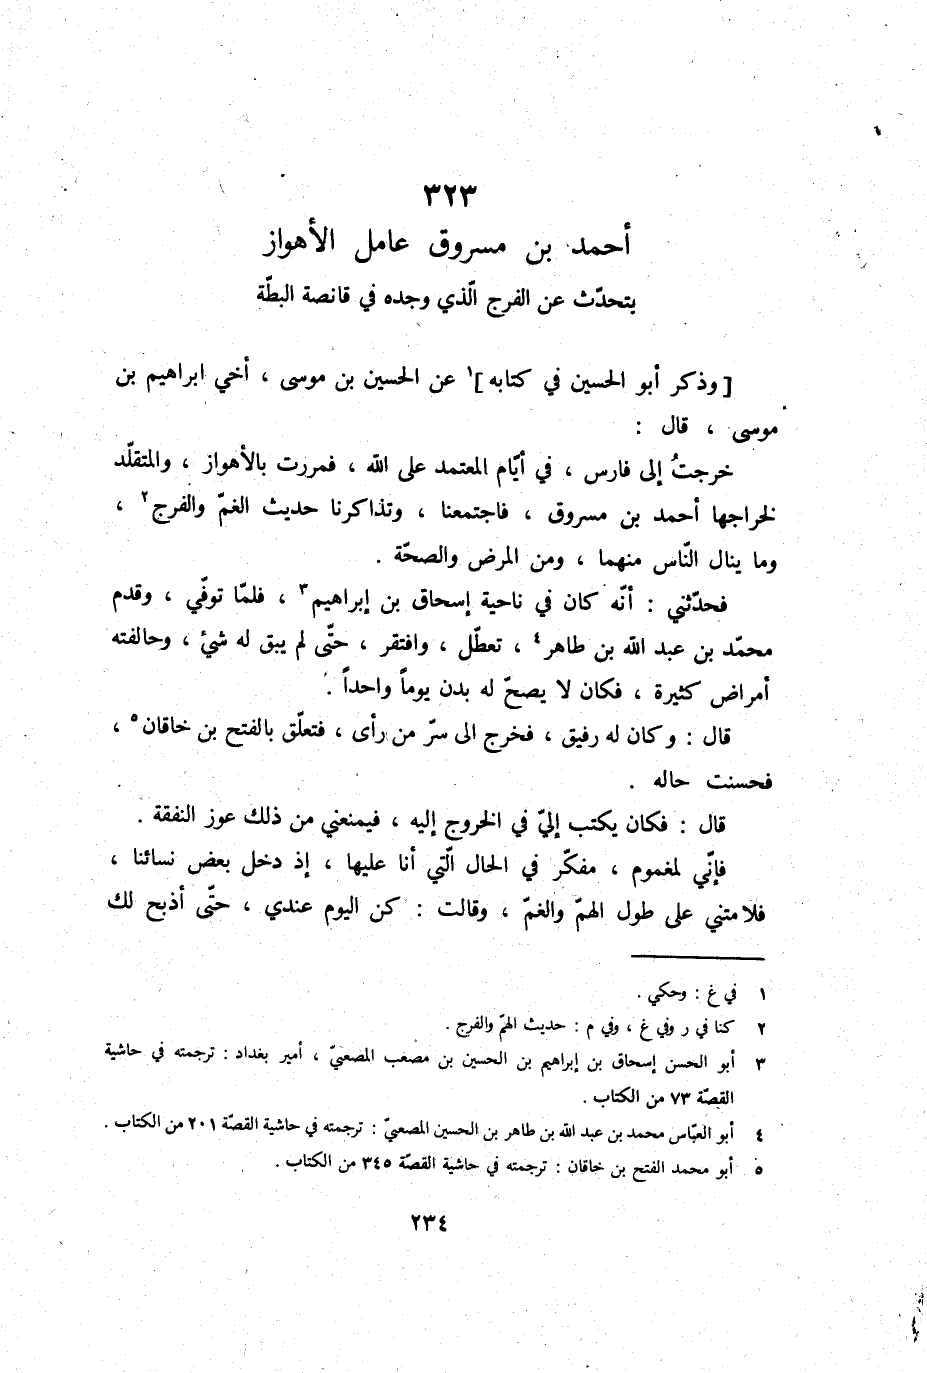 ٣٢٣
أحمد بن مسروق عامل الأهواز
يتحدّث عن الفرج الّذي وجده في قانصة البطّة
[ وذكر أبو الحسين في كتابه ]١ عن الحسين بن موسى ، أخي ابراهيم بن
موسى ، قال :
خرجتُ إلى فارس ، في أيّام المعتمد على الله ، فمررت بالأهواز ، والمتقلّد
لخراجها أحمد بن مسروق ، فاجتمعنا ، وتذاكرنا حديث الغمّ والفرج٢ ،
وما ينال النّاس منهما ، ومن المرض والصحّة .
فحدّثني : أنّه كان في ناحية إسحاق بن إبراهيم٣ ، فلمّا توفّي ، وقدم
محمّد بن عبد الله بن طاهر٤ ، تعطّل ، وافتقر ، حتّى لم يبق له شيء ، وحالفته
أمراض كثيرة ، فكان لا يصحّ له بدن يوماً واحداً .
قال : وكان له رفيق ، فخرج الى سرّ من رأى ، فتعلّق بالفتح بن خاقان٥ ،
فحسنت حاله .
قال : فكان يكتب إليّ في الخروج إليه ، فيمنعني من ذلك عوز النفقة .
فإنّي لمغموم ، مفكّر في الحال الّتي أنا عليها ، إذ دخل بعض نسائنا ،
فلامتني على طول الهمّ والغمّ ، وقالت : كن اليوم عندي ، حتّى أذبح لك
١ في غ : وحكي .
٢ كذا في ر وفي غ ، وفي م : حديث الهمّ والفرج .
٣ أبو الحسن إسحاق بن إبراهيم بن الحسين بن مصعب المصعبيّ ، أمير بغداد : ترجمته في حاشية
القصّة ٧٣ من الكتاب .
٤ أبو العبّاس محمد بن عبد الله بن طاهر بن الحسين المصعبيّ : ترجمته في حاشية القصّة ٢٠١ من الكتاب .
٥ أبو محمد الفتح بن خاقان : ترجمته في حاشية القصّة ٣٤٥ من الكتاب .
٢٣٤